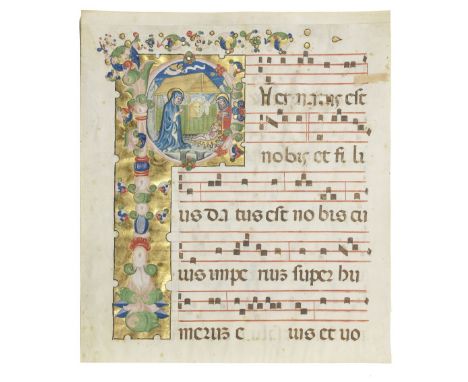 PU er na tus est
nobis et fi li
us da tus est no bis cu
ius impe rium super hu
merum e ius et vo